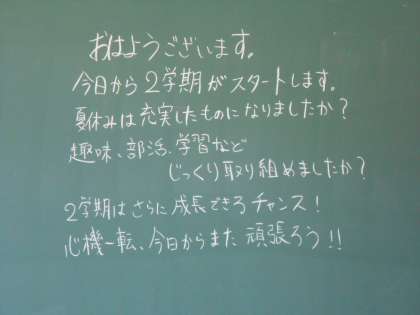 おはようございます。
今日から2学期がスタートします。
夏休みは充実したものになりましたか?
趣味、部活、学習など
じっくり取り組めましたか?
2学期はさらに成長できるチャンス!
心機一転、今日からまた頑張ろう!!